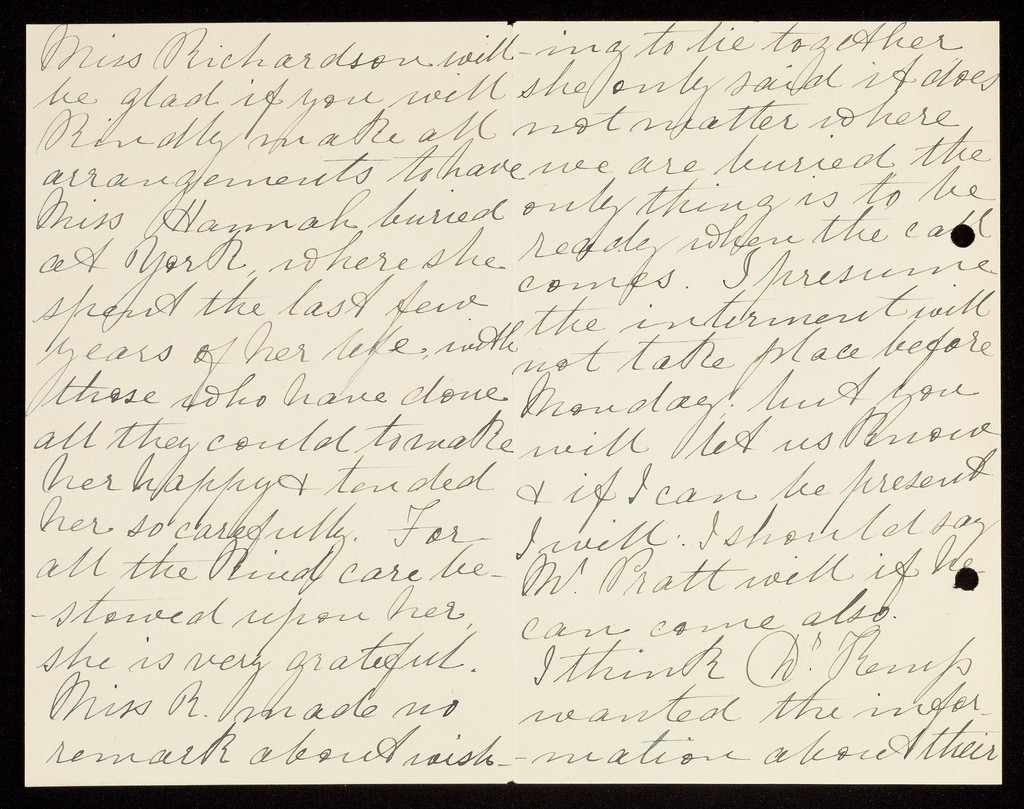 Miss Richardson will
be glad if you will
kindly make all
arrangements to have
Miss Hannah buried
at York, where she
spent the last few
years of her life, with
those who have done
all they could to make
her happy & tended
her so carefully. For
all the kind care be-
-stowed upon her,
she is very grateful.
Miss R. made no
remark about wish-
-ing to lie together
she only said it does
not matter where
we are buried the
only thing is to be
ready when the call
comes. I presume
the interment will
not take place before
Monday, but you
will let us know
& if I can be present
I will. I should say
Mr. Pratt will if he
can come also.
I think Dr. Kemp
wanted the infor-
-mation about their